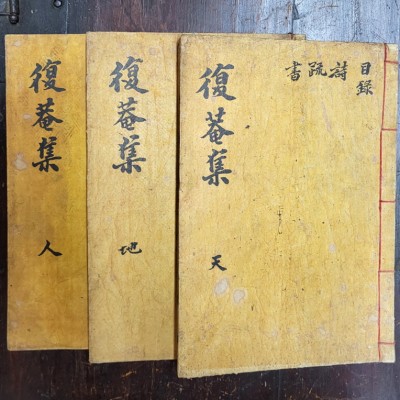 目錄
詩
疏
書
復菴集
天
復菴集
地
復菴集
人